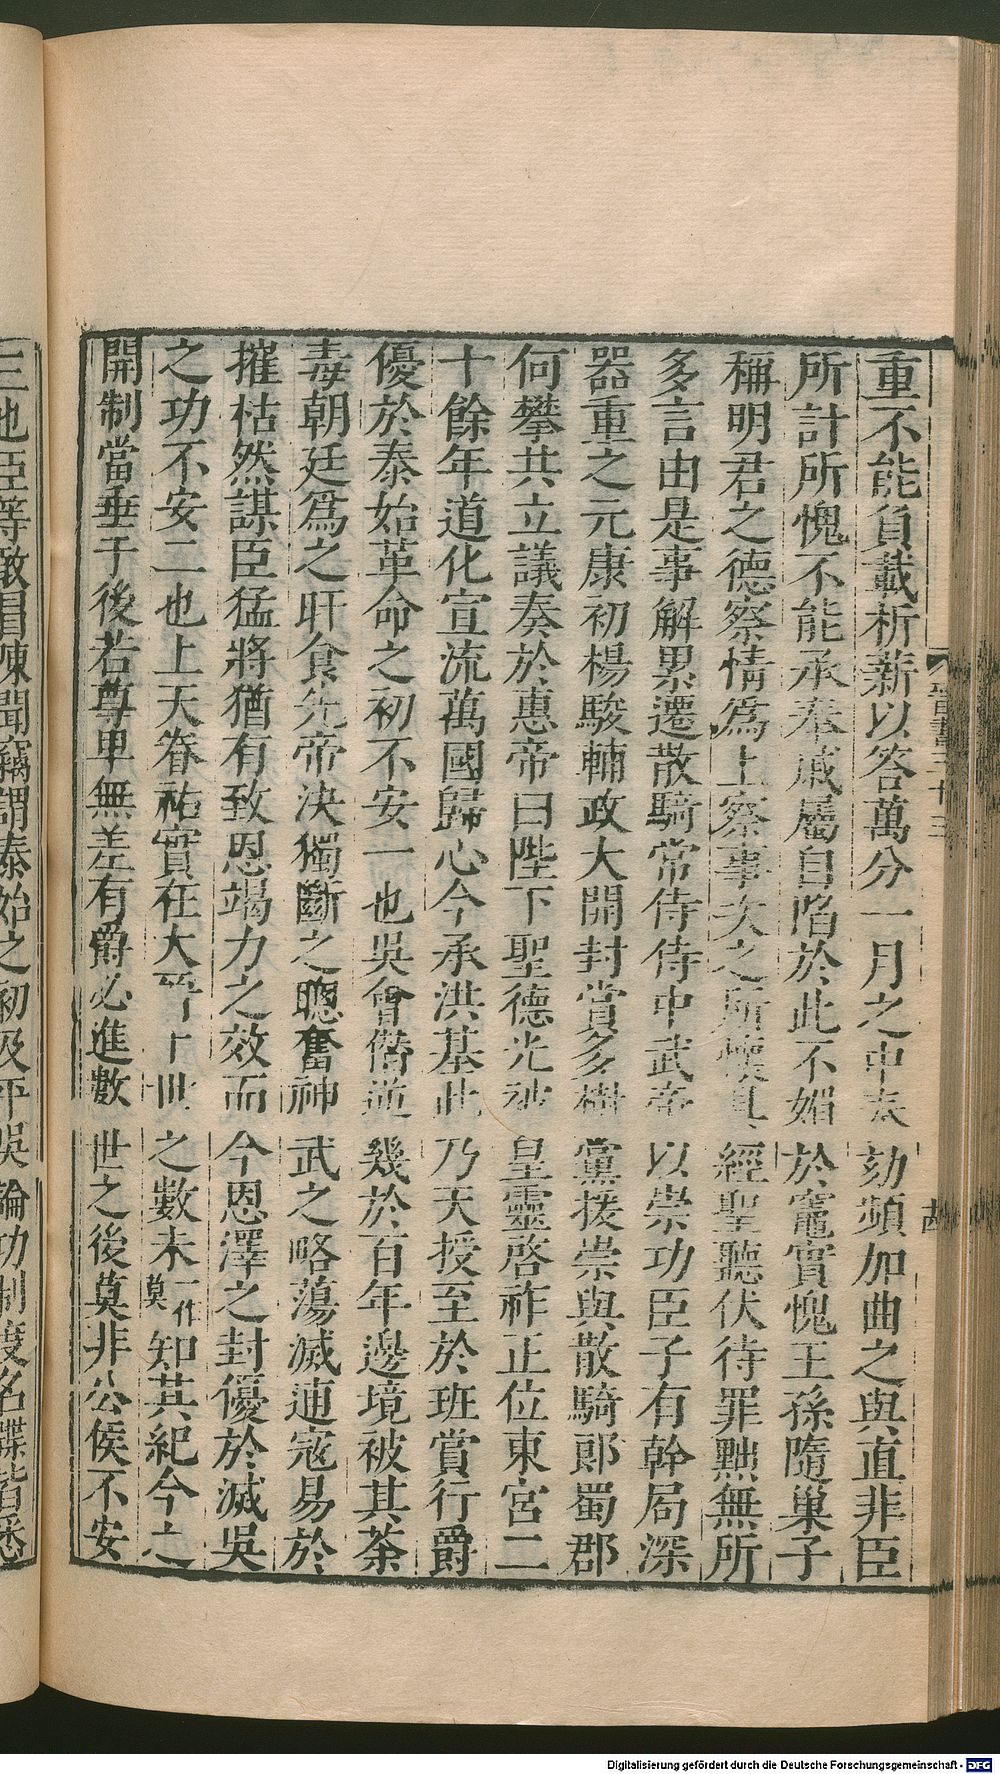 重不能負載析薪以答萬分一月之中奏劾頻加曲之與直非臣
所計所愧不能承奉戚屬自陷於此不媚於竈實愧王孫隨巢子
稱明君之德察情爲上察事次之所懷具經聖聽伏待罪黜無所
多言由是事解累遷散騎常侍侍中武帝以崇功臣子有幹局深
器重之元康初楊駿輔政大開封賞多樹黨援崇與散騎郎蜀郡
何攀共立議奏於惠帝曰陛下聖德光被皇靈啓祚正位東宮二
十餘年道化宣流萬國歸心今承洪基此乃天授至於班賞行爵
優於泰始革命之初不安一也吳會僭逆幾於百年邊境被其荼
毒朝廷爲之旰食先帝決獨斷之聰奮神武之略蕩滅逋寇易於
摧枯然謀臣猛將猶有致恩竭力之效而今恩澤之封優於滅吳
之功不安二也上天眷祐實在大晉卜世之數未一作莫知其紀今之
開制當垂于後若尊卑無差有爵必進數世之後莫非公侯不安
三也臣等敢冒陳聞竊謂泰始之初及平吳論功制度名牒皆悉
Digitalisierung gefördert durch die Deutsche Forschungsgemeinschaft - DFG